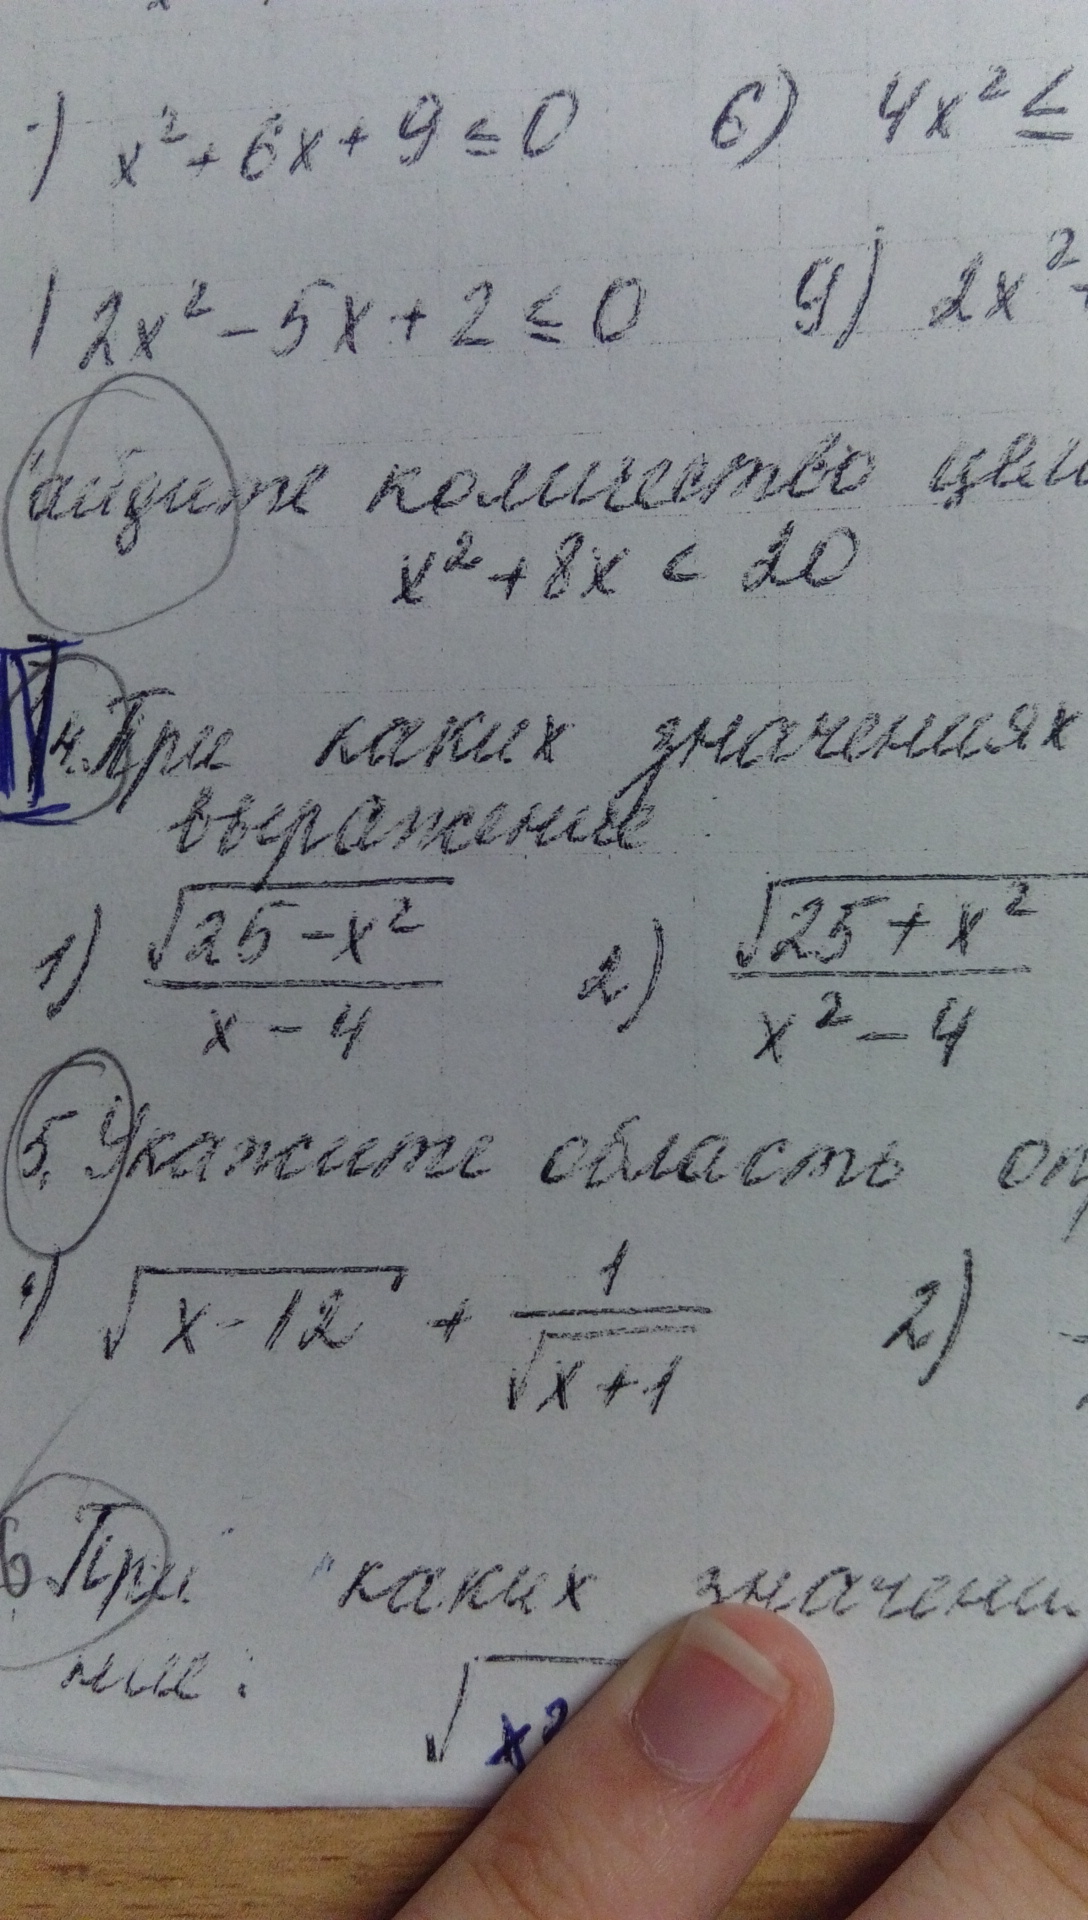 ) x² + 6x + 9 ≤ 0 6) 4x² ≤
) 2x² - 5x + 2 ≤ 0 9) 2x² +
айдите количество цел
x² + 8x < 20
IV 4. При каких значениях
выражение
1) √(25 - x²) / (x - 4) 2) √(25 + x²) / (x² - 4)
5. Укажите область оп
1) √(x - 12) + 1 / √(x + 1) 2)
6. При каких значени
ние: √x²